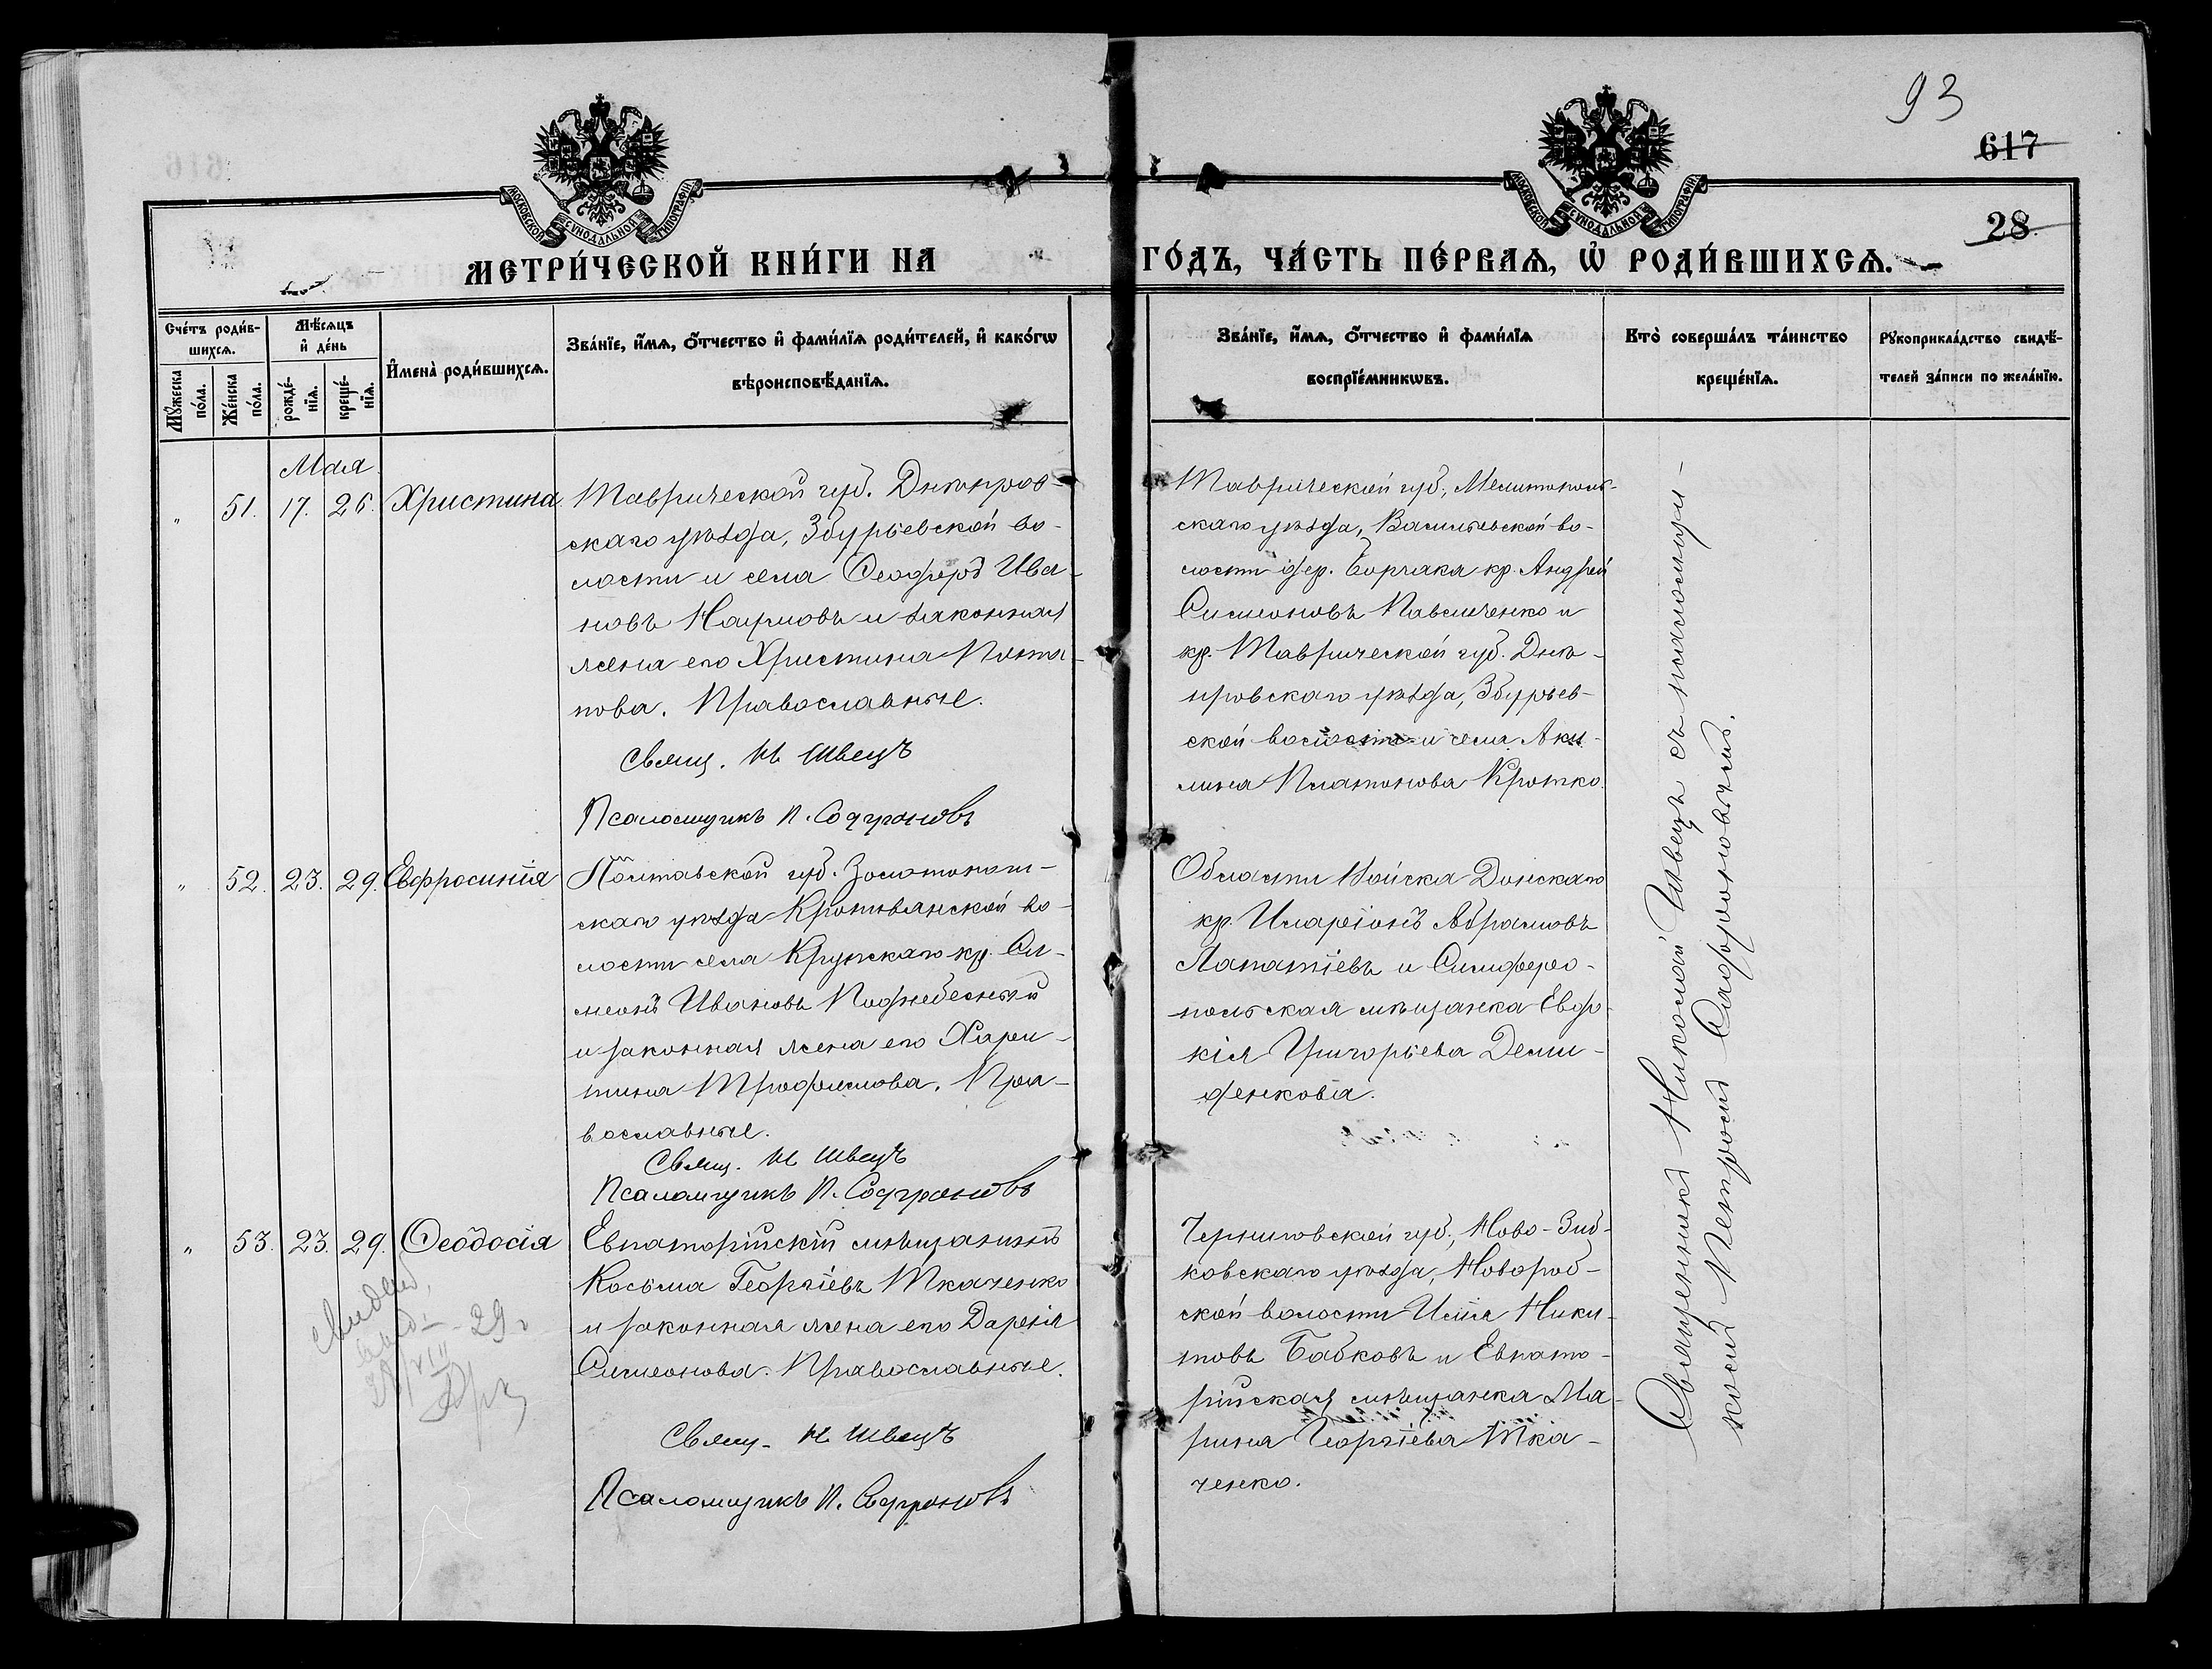 93
617
28
МОСКОВСКОЙ СѴНОДАЛЬНОЙ ТИПОГРАФІИ
МОСКОВСКОЙ СѴНОДАЛЬНОЙ ТИПОГРАФІИ
МЕТРИ́ЧЕСКОЙ КНИ́ГИ НА
ГО́ДЪ, ЧА́СТЬ ПЕ́РВАѦ, Ѽ РОДИ́ВШИХСѦ.
Сче́тъ роди́в-
шихсѧ.
Мꙋ́жеска
по́ла.
Же́нска
по́ла.
Мѣ́сѧцъ
и҆ де́нь
рожде́-
нїѧ.
креще́-
нїѧ.
И҆мена̀ роди́вшихсѧ.
Зва́нїе, и҆́мѧ, ѻ҆́тчество и҆ фами́лїѧ роди́телей, и҆ како́гѡ
вѣроисповѣ́данїѧ.
Зва́нїе, и҆́мѧ, ѻ҆́тчество и҆ фами́лїѧ
воспрїе́мникѡвъ.
Кто̀ соверша́лъ та́инство
креще́нїѧ.
Рꙋкоприкла́дство свидѣ́-
телей за́писи по жела́нїю.
Мая
" 51. 17. 26. Христина
Таврической губ. Днѣпров-
скаго уѣзда, Збурьевской во-
лости и села Ѳеодоръ Ива-
новъ Наумовъ и законная
жена его Христина Пота-
пова. Православные.
Свящ. Н Швецъ
Псаломщикъ П. Софроновъ
Таврической губ., Мелитополь-
скаго уѣзда, Васильевской во-
лости дер. Бурчака кр. Андрей
Симеоновъ Павличенко и
кр. Таврической губ. Днѣ-
провскаго уѣзда, Збурьев-
ской волости и села Аки-
лина Платонова Кротко.
" 52. 23. 29. Евфросинія
Полтавской губ. Золотонош-
скаго уѣзда Кропивянской во-
лости села Крупскаго кр. Си-
меонъ Ивановъ Поднебесный
и законная жена его Хари-
тина Трофимова. Пра-
вославные.
Свящ. Н Швецъ
Псаломщикъ П. Софроновъ
Области Войска Донскаго
кр. Иларіонъ Абрамовъ
Лапатіевъ и Симферо-
польская мѣщанка Евдо-
кія Григорьева Деми-
денкова.
" 53. 23. 29. Ѳеодосія
Евпаторійскій мѣщанинъ
Косьма Георгіевъ Ткаченко
и законная жена его Дарія
Симеонова. Православные.
Свящ. Н Швецъ
Псаломщикъ П. Софроновъ
Черниговской губ., Ново-Зиб-
ковскаго уѣзда, Новороб-
ской волости Илія Ники-
товъ Бабковъ и Евпато-
рійская мѣщанка Ма-
рина Георгіева Тка-
ченко.
29 г
Священникъ Николай Швецъ съ псаломщи-
комъ Петромъ Софроновымъ.